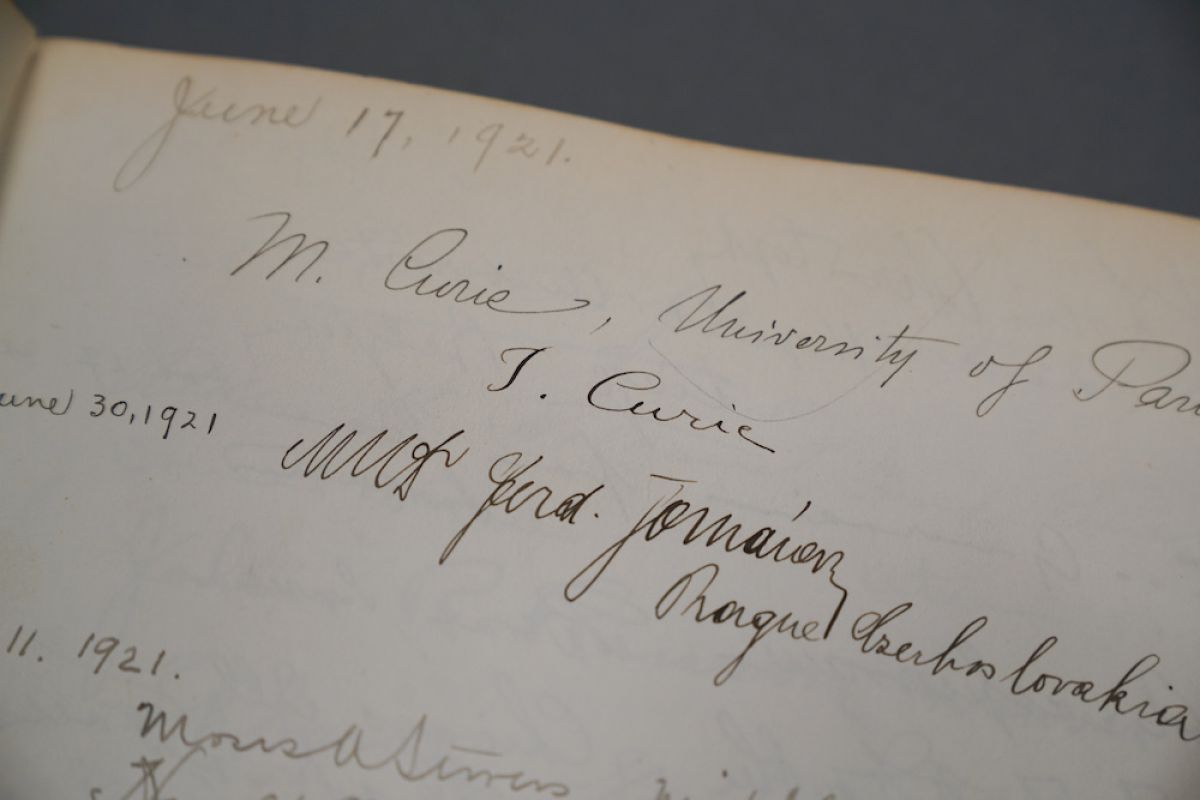 June 17, 1921.
M. Curie, University of Par
I. Curie
une 30, 1921
MUDr Ferd.
Prague Czechoslovakia
11. 1921.